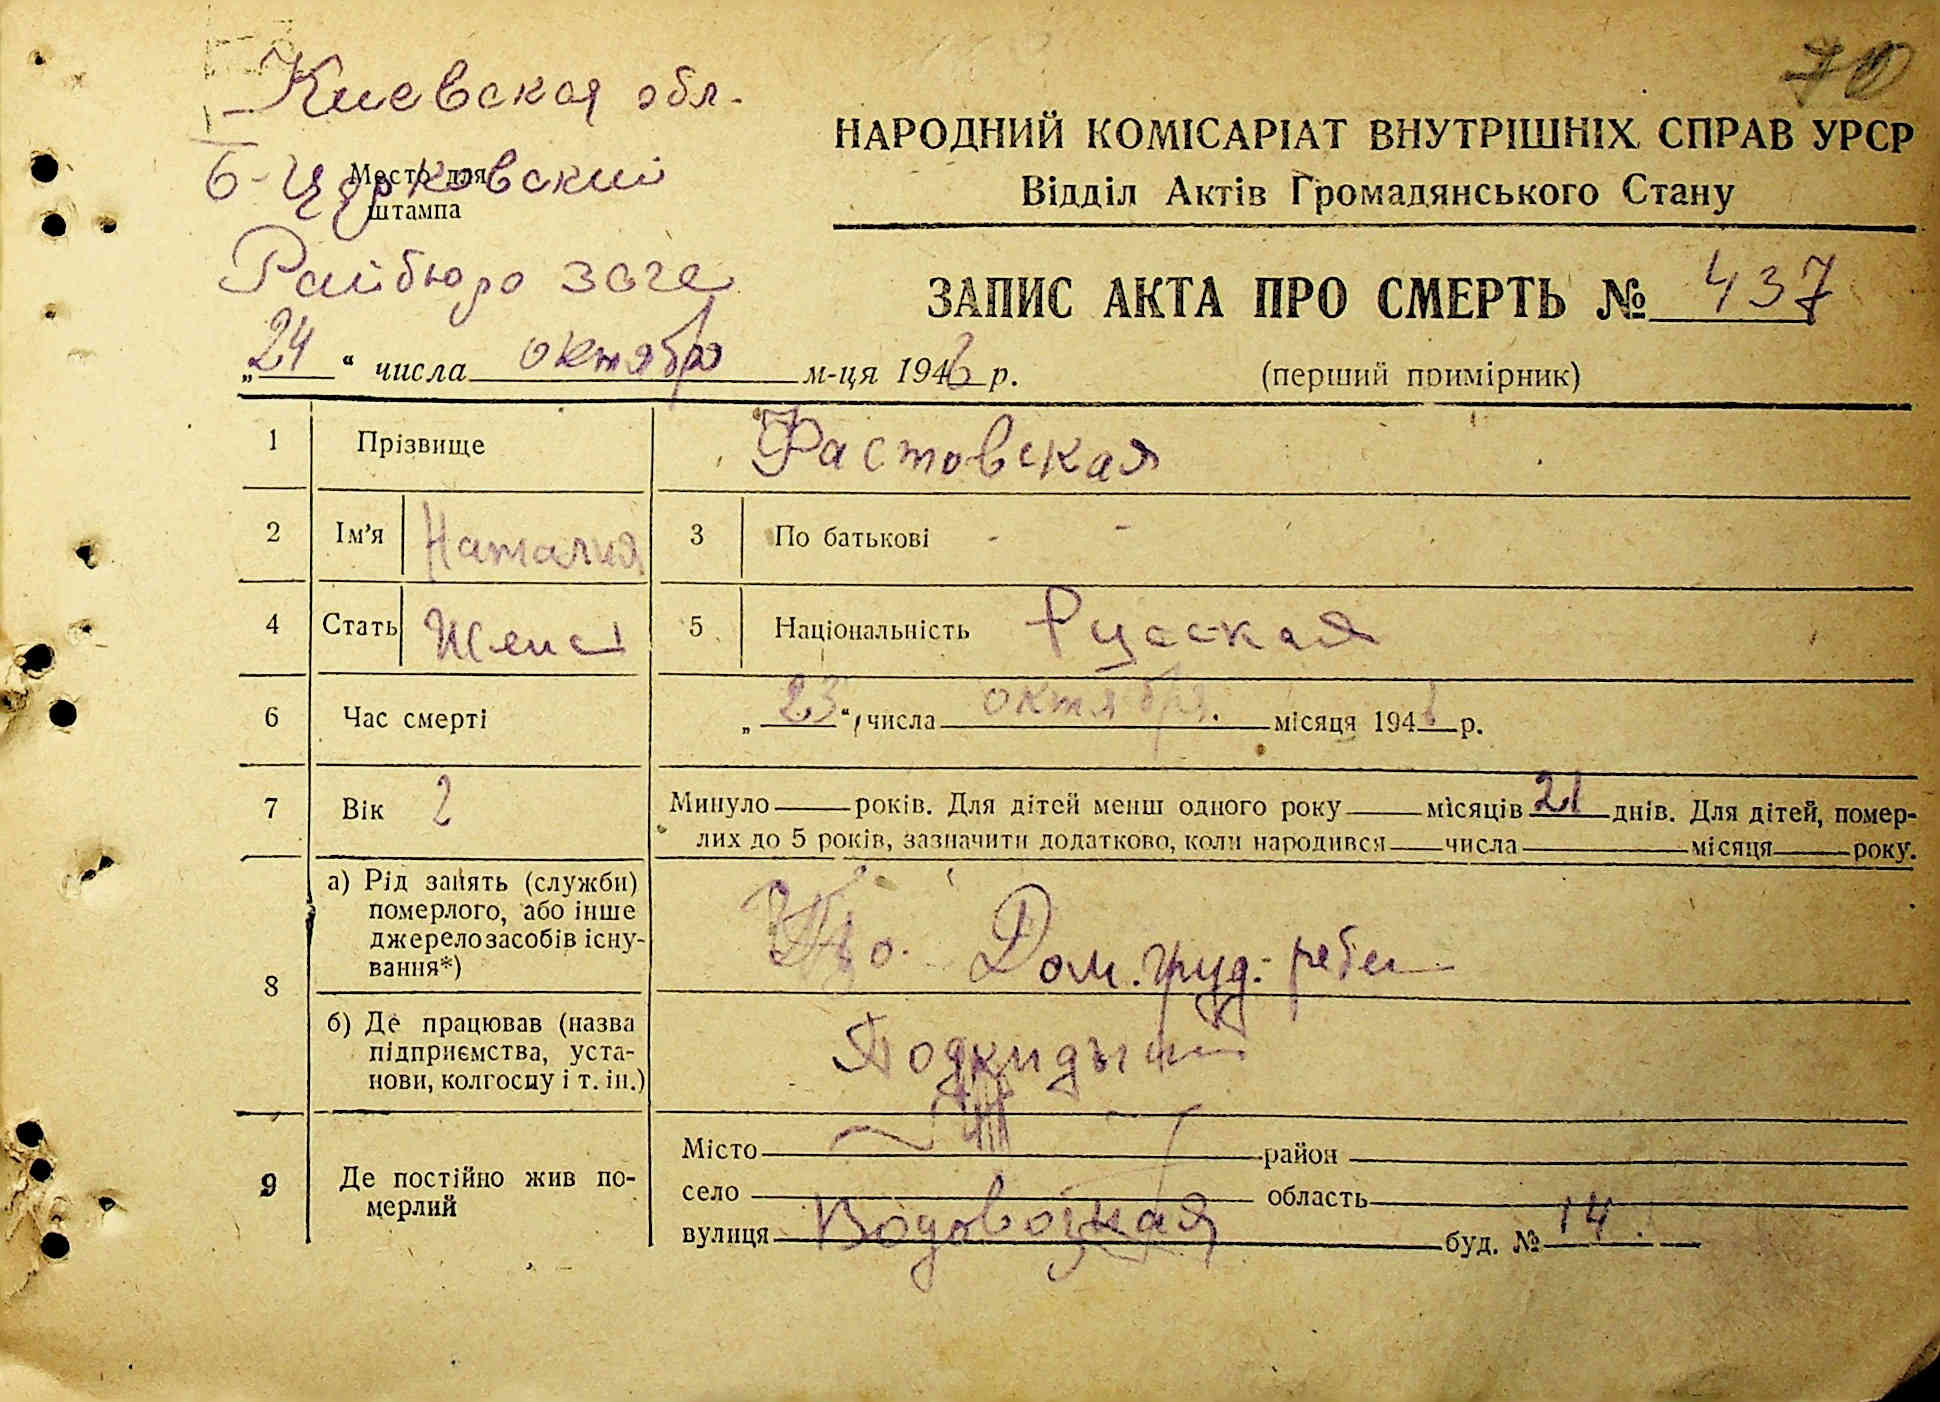 70
Киевская обл.
НАРОДНИЙ КОМІСАРІАТ ВНУТРІШНІХ СПРАВ УРСР
Відділ Актів Громадянського Стану
Место для
штампа
Б-Церковский
Райбюро загс
ЗАПИС АКТА ПРО СМЕРТЬ № 437
„24“ числа октября м-ця 1946 р.
(перший примірник)
1 Прізвище Фастовская
2 Ім’я Наталия 3 По батькові -
4 Стать Женс 5 Національність Русская
6 Час смерті „23“ числа октября. місяця 194 р.
7 Вік 2 Минуло рокiв. Для дітей менш одного року місяців 21 днів. Для дітей, помер-
лих до 5 років, зазначити додатково, коли народився числа місяця року.
8 а) Рід занять (служби)
померлого, або інше
джерело засобів існу-
вання*)
Дом. груд. ребен
б) Де працював (назва
підприємства, уста-
нови, колгоспу і т. ін.)
Подкидыш
9 Де постійно жив по-
мерлий
Місто район
село область
вулиця буд. № 14